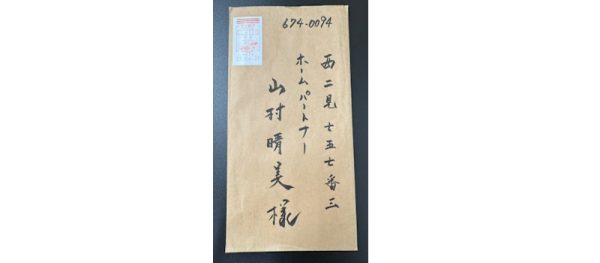 674-0094
西二見七五七番三
ホームパートナー
山村晴美様